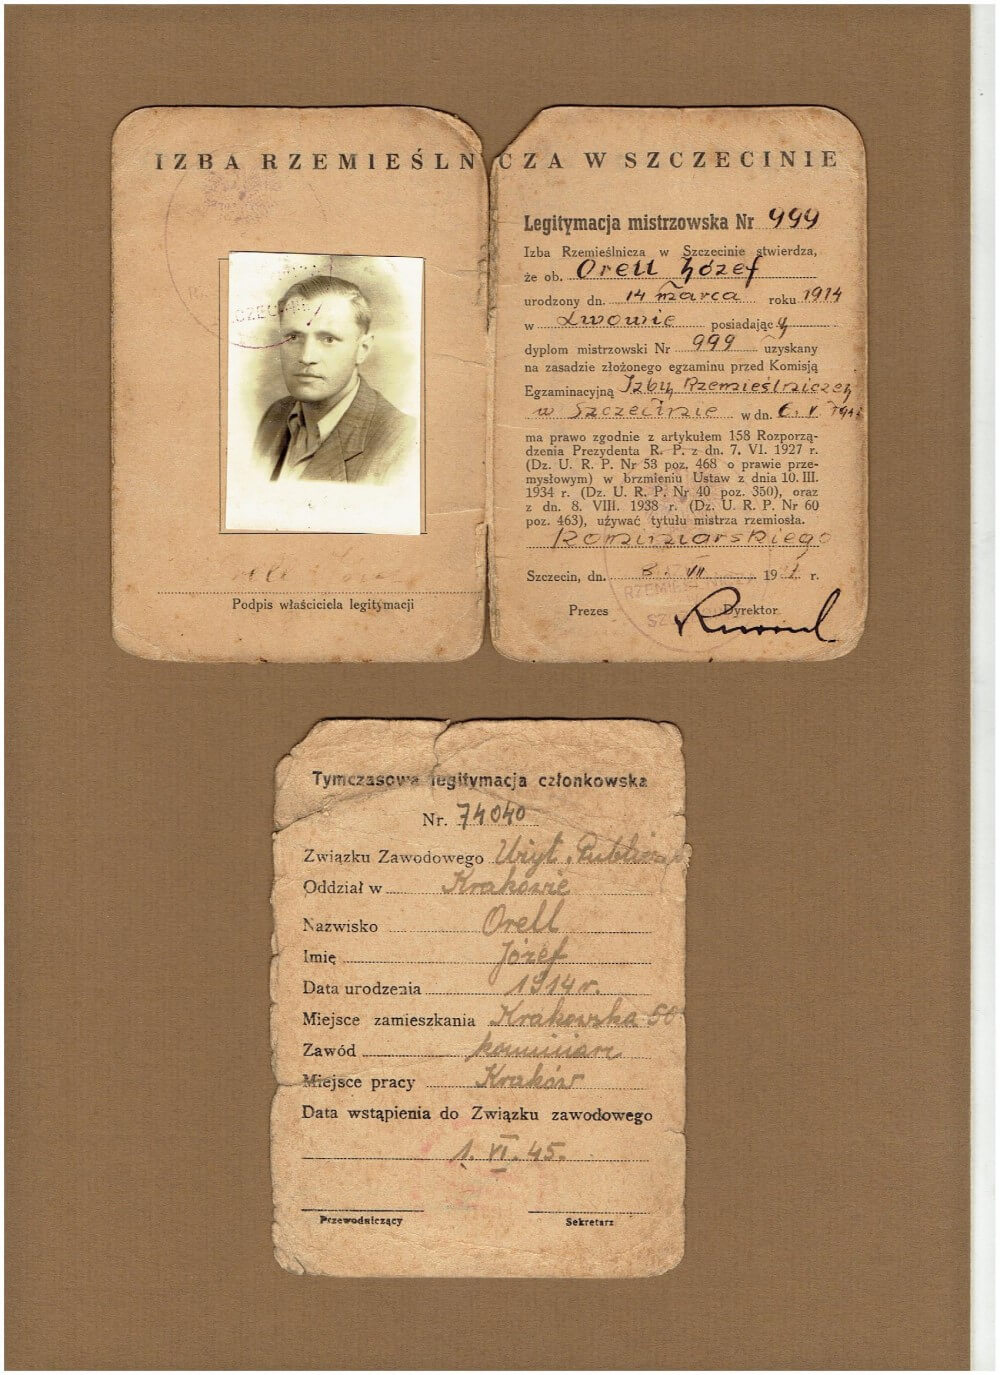 IZBA RZEMIEŚLNICZA W SZCZECINIE
Podpis właściciela legitymacji
Legitymacja mistrzowska Nr 999
Izba Rzemieślnicza w Szczecinie stwierdza,
że ob. Orell Józef
urodzony dn. 14 marca roku 1914
w Lwowie posiadający
dyplom mistrzowski Nr 999 uzyskany
na zasadzie złożonego egzaminu przed Komisją
Egzaminacyjną Izby Rzemieślniczej
w Szczecinie w dn. 6. V
ma prawo zgodnie z artykułem 158 Rozporzą-
dzenia Prezydenta R. P. z dn. 7. VI. 1927 r.
(Dz. U. R. P. Nr 53 poz. 468 o prawie prze-
mysłowym) w brzmieniu Ustaw z dnia 10. III.
1934 r. (Dz. U. R. P. Nr 40 poz. 350), oraz
z dn. 8. VIII. 1938 r. (Dz. U. R. P. Nr 60
poz. 463), używać tytułu mistrza rzemiosła.
Kominiarskiego
Szczecin, dn. 8. VII 19 r.
Prezes Dyrektor
Tymczasowa legitymacja członkowska
Nr. 74040
Związku Zawodowego Użyt. Publiczn
Oddział w Krakowie
Nazwisko Orell
Imię Józef
Data urodzenia 1914 r.
Miejsce zamieszkania Krakowska 50
Zawód kominiarz
Miejsce pracy Kraków
Data wstąpienia do Związku zawodowego
1. VI. 45.
Przewodniczący Sekretarz